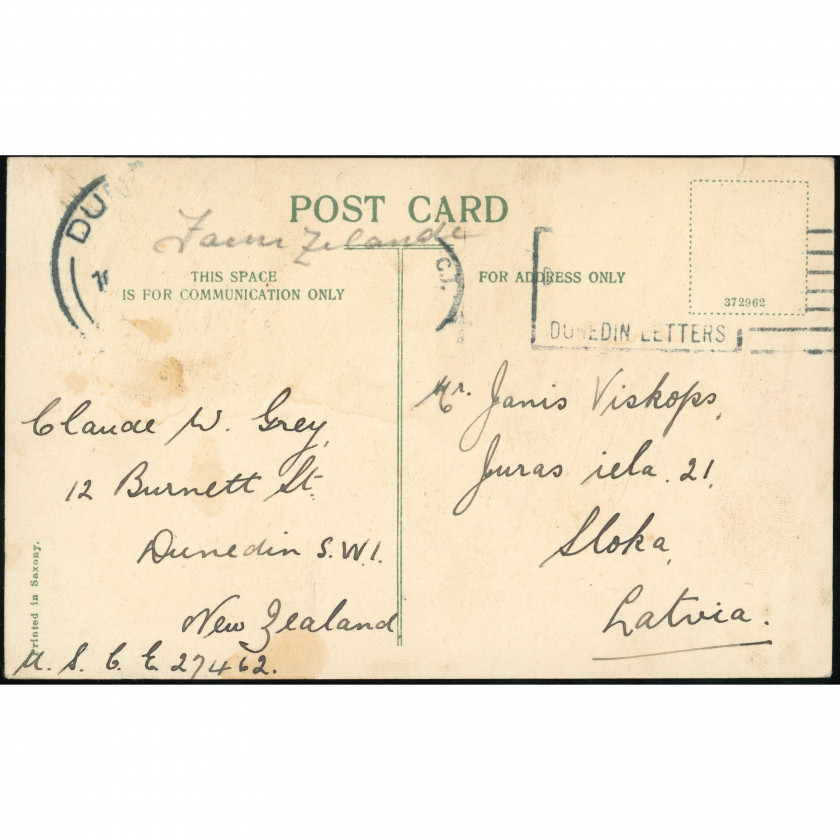 POST CARD
THIS SPACE
IS FOR COMMUNICATION ONLY
FOR ADDRESS ONLY
372962
DUNEDIN LETTERS
Claude W. Grey,
12 Burnett St.
Dunedin S.W.1.
New Zealand
M. S. C. E. 27462.
Mr. Janis Viskops,
Juras iela. 21,
Sloka,
Latvia.
Printed in Saxony.